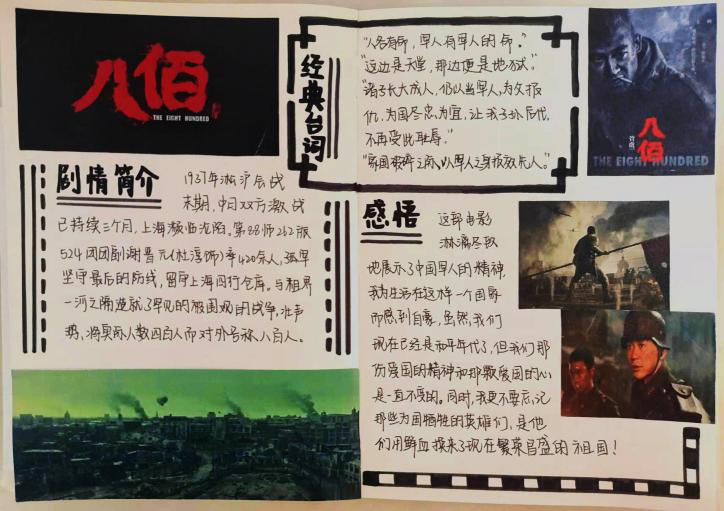 八佰
THE EIGHT HUNDRED
剧情简介
1937年淞沪会战
末期,中日双方激战
已持续三个月,上海濒临沦陷。第88师262旅
524团团副谢晋元(杜淳饰)率420余人,孤军
坚守最后的防线,留守上海四行仓库。与租界
一河之隔造就了罕见的被围观的战争,壮声
势,将实际人数四百人而对外号称八百人。
经典台词
"人各有命,军人有军人的命。"
"这边是天堂,那边便是地狱。"
"诸子长大成人,仍以当军人,为父报
仇,为国尽忠为宜,让我子孙后代,
不再受此耻辱。"
"家国破碎之前,以军人之身报效先人。"
八佰
THE EIGHT HUNDRED
感悟
这部电影
淋漓尽致
地展示了中国军人的精神,
我为生活在这样一个国家
而感到自豪,虽然,我们
现在已经是和平年代了,但我们那
份爱国的精神和那颗爱国的心
是一直不变的。同时,我更不要忘记
那些为国牺牲的英雄们,是他
们用鲜血换来了现在繁荣昌盛的祖国!